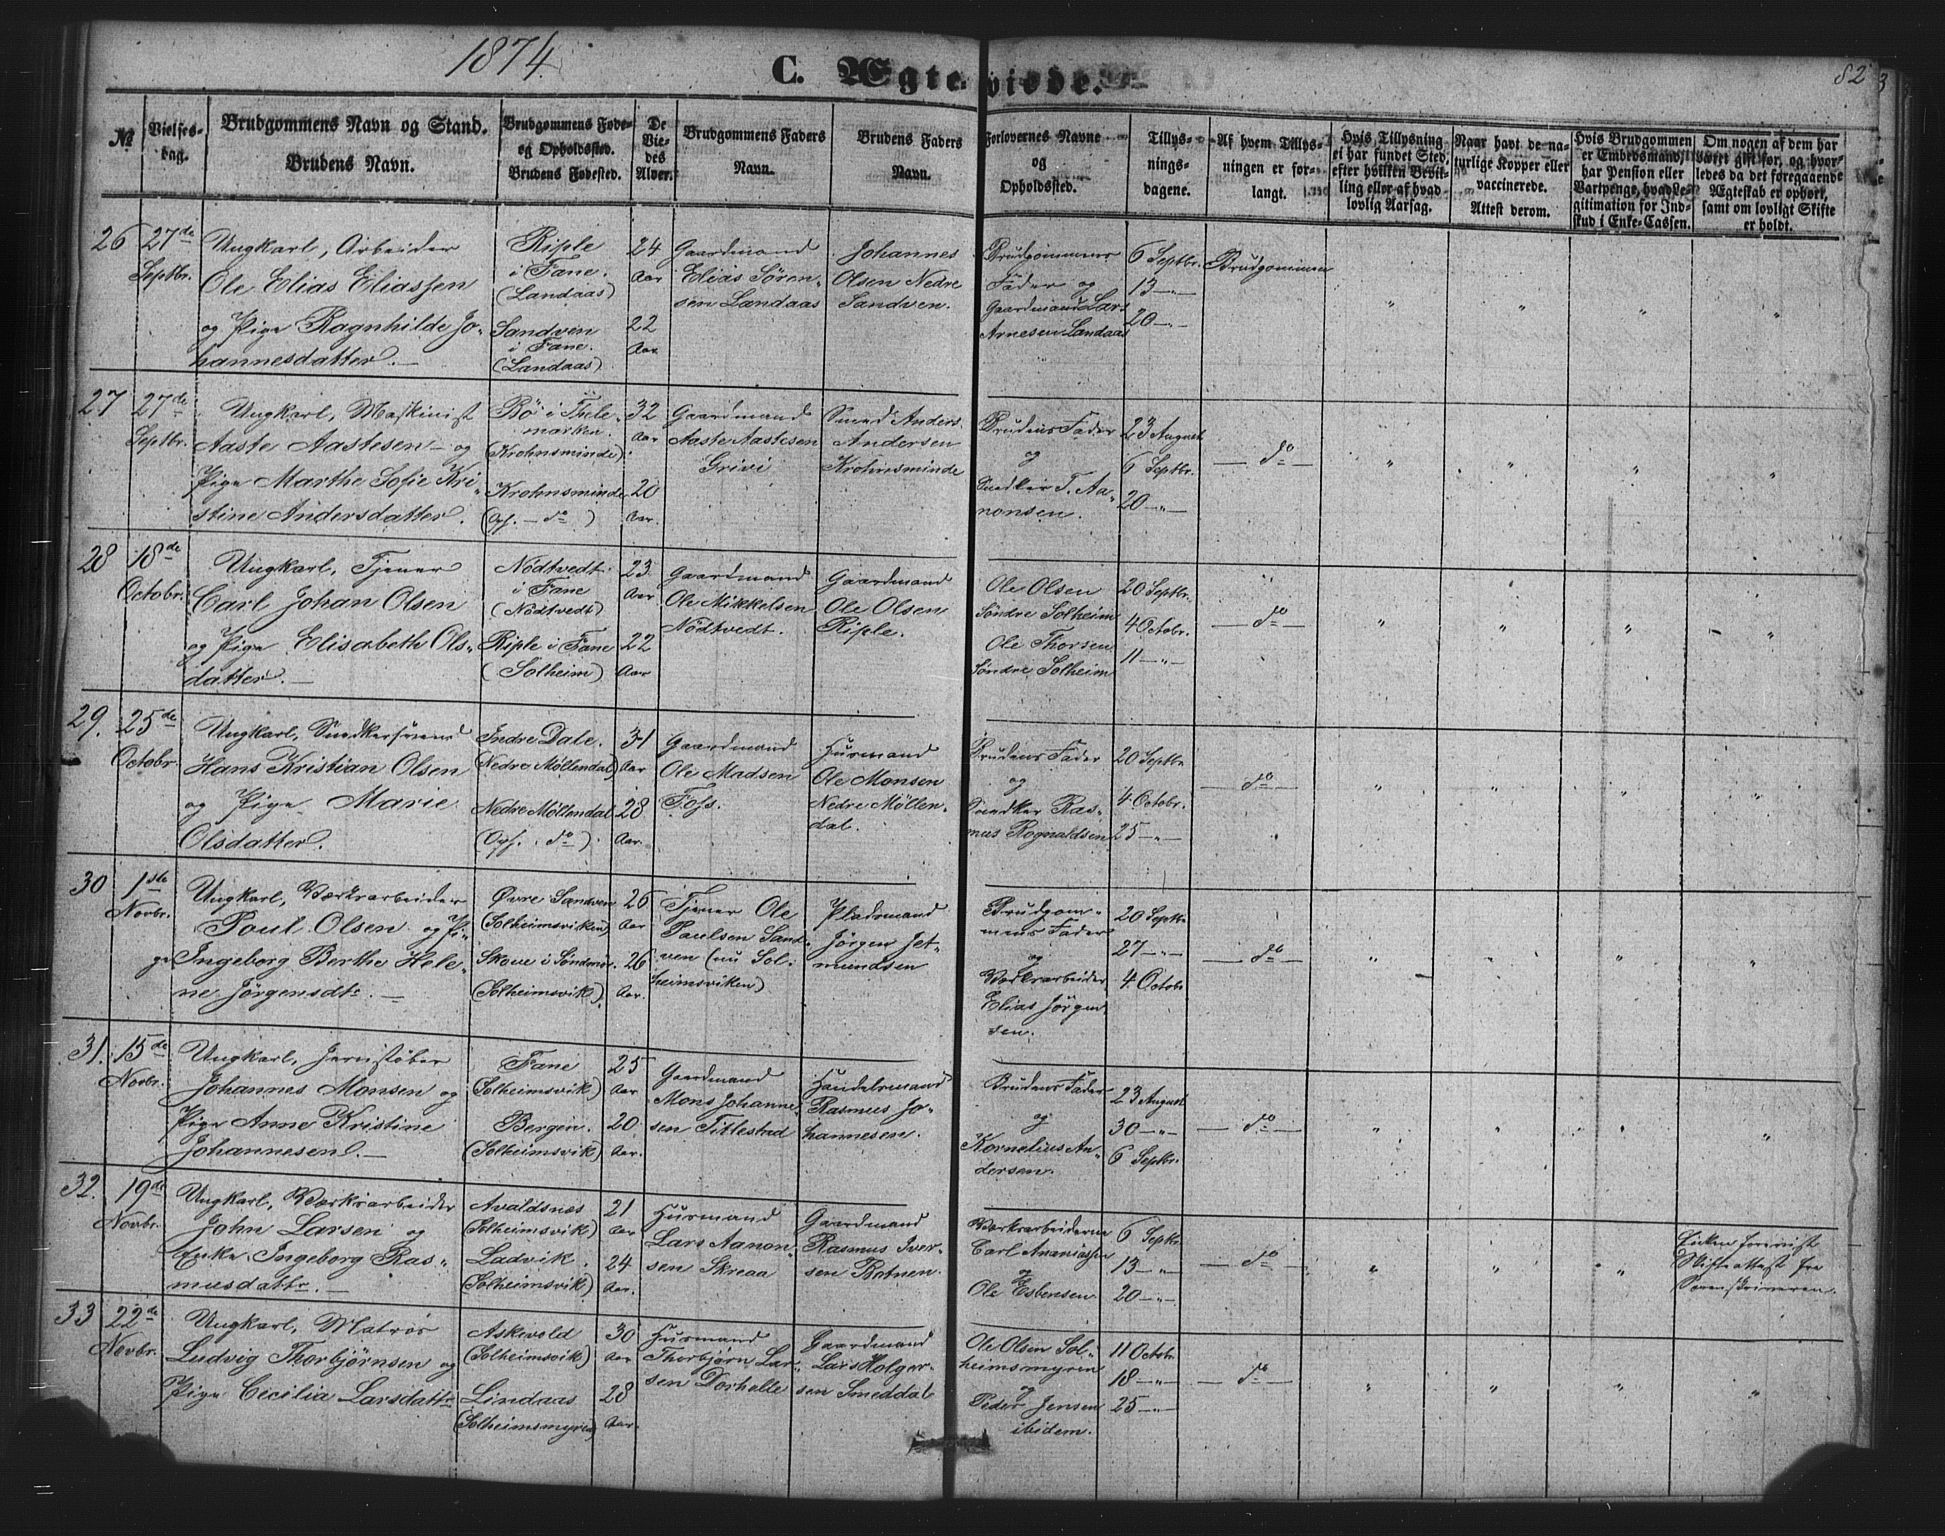 1874.
C. Ægteviede.
82
№
Vielses-
dag.
Brudgommens Navn og Stand.
Brudens Navn.
Brudgommens Føde-
og Opholdssted.
Brudens Fødested.
De
Vie-
des
Alver.
Brudgommens Faders
Navn.
Brudens Faders
Navn.
Forlovernes Navne
og
Opholdssted.
Tillys-
nings-
dagene.
Af hvem Tillys-
ningen er for-
langt.
Hvis Tillysning
ei har fundet Sted,
efter hvilken Bevil-
ling eller af hvad
lovlig Aarsag.
Naar havt de na-
turlige Kopper eller
vaccinerede.
Attest derom.
Hvis Brudgommen
er Embedsmand,
har Pension eller
Vartpenge, hvad Le-
gitimation for Ind-
skud i Enke-Cassen.
Om nogen af dem har
været gift før, og hvor-
ledes da det foregaaende
Ægteskab er ophørt,
samt om lovligt Skifte
er holdt.
26
27de
Septbr.
Ungkarl, Arbeider
Ole Elias Eliassen
og Pige Ragnhilde Jo-
hannesdatter.
Riple
i Fane.
(Landaas)
Sandven
i Fane.
(Landaas)
24
Aar
22
Aar
Gaardmand
Elias Sören-
sen Landaas
Johannes
Olsen Nedre
Sandven.
Brudgommens
Fader og
Gaardmand Lars
Arnesen Landaas
6 Septbr.
13 -"-
20 -"-
Brudgommen
27
27de
Septbr.
Ungkarl, Maskinist
Aaste Aastesen og
Pige Marthe Sofie Kri-
stine Andersdatter.
Bö i Thele-
marken.
(Krohnsminde)
Krohnsminde
(Oph. do)
32
Aar
20
Aar.
Gaardmand
Aaste Aastesen
Grivi
Smed Anders
Andersen
Krohnsminde
Brudens Fader
og
Snedker T. Aa-
nonsen.
23 August
6 Septbr.
20 -"-
do
28
18de
Octobr.
Ungkarl, Tjener
Carl Johan Olsen
og Pige Elisabeth Ols-
datter.
Nödtvedt
i Fane
(Nödtvedt)
Riple i Fane
(Solheim)
23
Aar
22
Aar
Gaardmand
Ole Mikkelsen
Nödtvedt.
Gaardmand
Ole Olsen
Riple.
Ole Olsen
Söndre Solheim
Ole Thorsen
Söndre Solheim
20 Septbr.
4 Octobr.
11 -"-
do
29.
25de
Octobr.
Ungkarl, Snedkersvend
Hans Kristian Olsen
og Pige Marie
Olsdatter.
Indre Dale.
(Nedre Möllendal)
Nedre Möllendal
(Oph. do)
31
Aar
28
Aar.
Gaardmand
Ole Madsen
Foss.
Husmand
Ole Monsen
Nedre Möllen-
dal.
Brudens Fader
og
Snedker Ras-
mus Rognaldsen
20 Septbr
4 Octobr.
25 -"-
do
30
1ste
Novbr.
Ungkarl, Værksarbeider
Poul Olsen og Pi-
ge Ingeborg Berthe Hele-
ne Jörgensdtr.
Øvre Sandven
(Solheimsviken)
Skove i Søndmør.
(Solheimsvik)
26
Aar
26
Aar.
Tjener Ole
Paulsen Sand-
ven (nu Sol-
heimsviken)
Pladsmand
Jörgen Jet-
mundsen
Brudgom-
mens Fader
og
Værksarbeider
Elias Jörgen-
sen.
20 Septbr
27 -"-
4 Octobr
do
31.
15de
Novbr.
Ungkarl, Jernstøber
Johannes Monsen og
Pige Anne Kristine
Johannesen.
Fane
(Solheimsvik)
Bergen.
(Solheimsvik)
25
Aar
20
Aar.
Gaardmand
Mons Johanne-
sen Tittestad
Handelsmand
Rasmus Jo-
hannesen.
Brudens Fader
og
Kornelius An-
dersen.
23 August
30 -"-
6 Septbr.
do
32.
19de
Novbr.
Ungkarl, Værksarbeider
John Larsen og
Enke Ingeborg Ras-
musdattr.
Avaldsnæs
(Solheimsvik)
Ladvik.
(Solheimsvik)
21
Aar
24
Aar.
Husmand
Lars Aanon-
sen Skreaa
Gaardmand
Rasmus Iver-
sen Botnen.
Værksarbeiderne
Carl Ananiassen
og
Ole Esbensen.
6 Septbr
13 -"-
20 -"-
do
Enken forevist
Skifteattest fra
Sorenskriveren.
33
22de
Novbr.
Ungkarl, Matros
Ludvig Thorbjörnsen og
Pige Cecilia Larsdattr
Askevold
(Solheimsvik)
Lindaas
(Solheimsmyren)
30
Aar
28
Aar.
Husmand
Thorbjörn Lar-
sen Dorhelle
Gaardmand
Lars Holger-
sen Smeddal
Ole Olsen Sol-
heimsmyren
og
Peder Jensen
ibidem.
11 Octobr
18 -"-
25 -"-
do